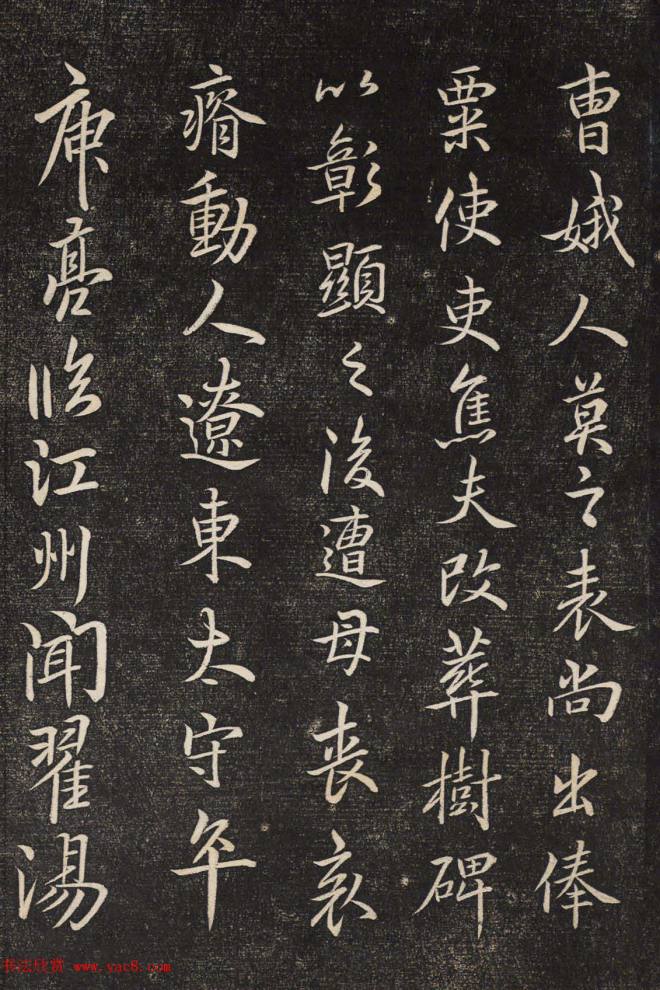 曹娥人莫之表尚出俸
粟使吏焦夫改葬樹碑
以彰顯之後遭母喪哀
瘠動人遼東太守卒
庾亮临江州聞翟湯
书法欣赏 www.yac8.com